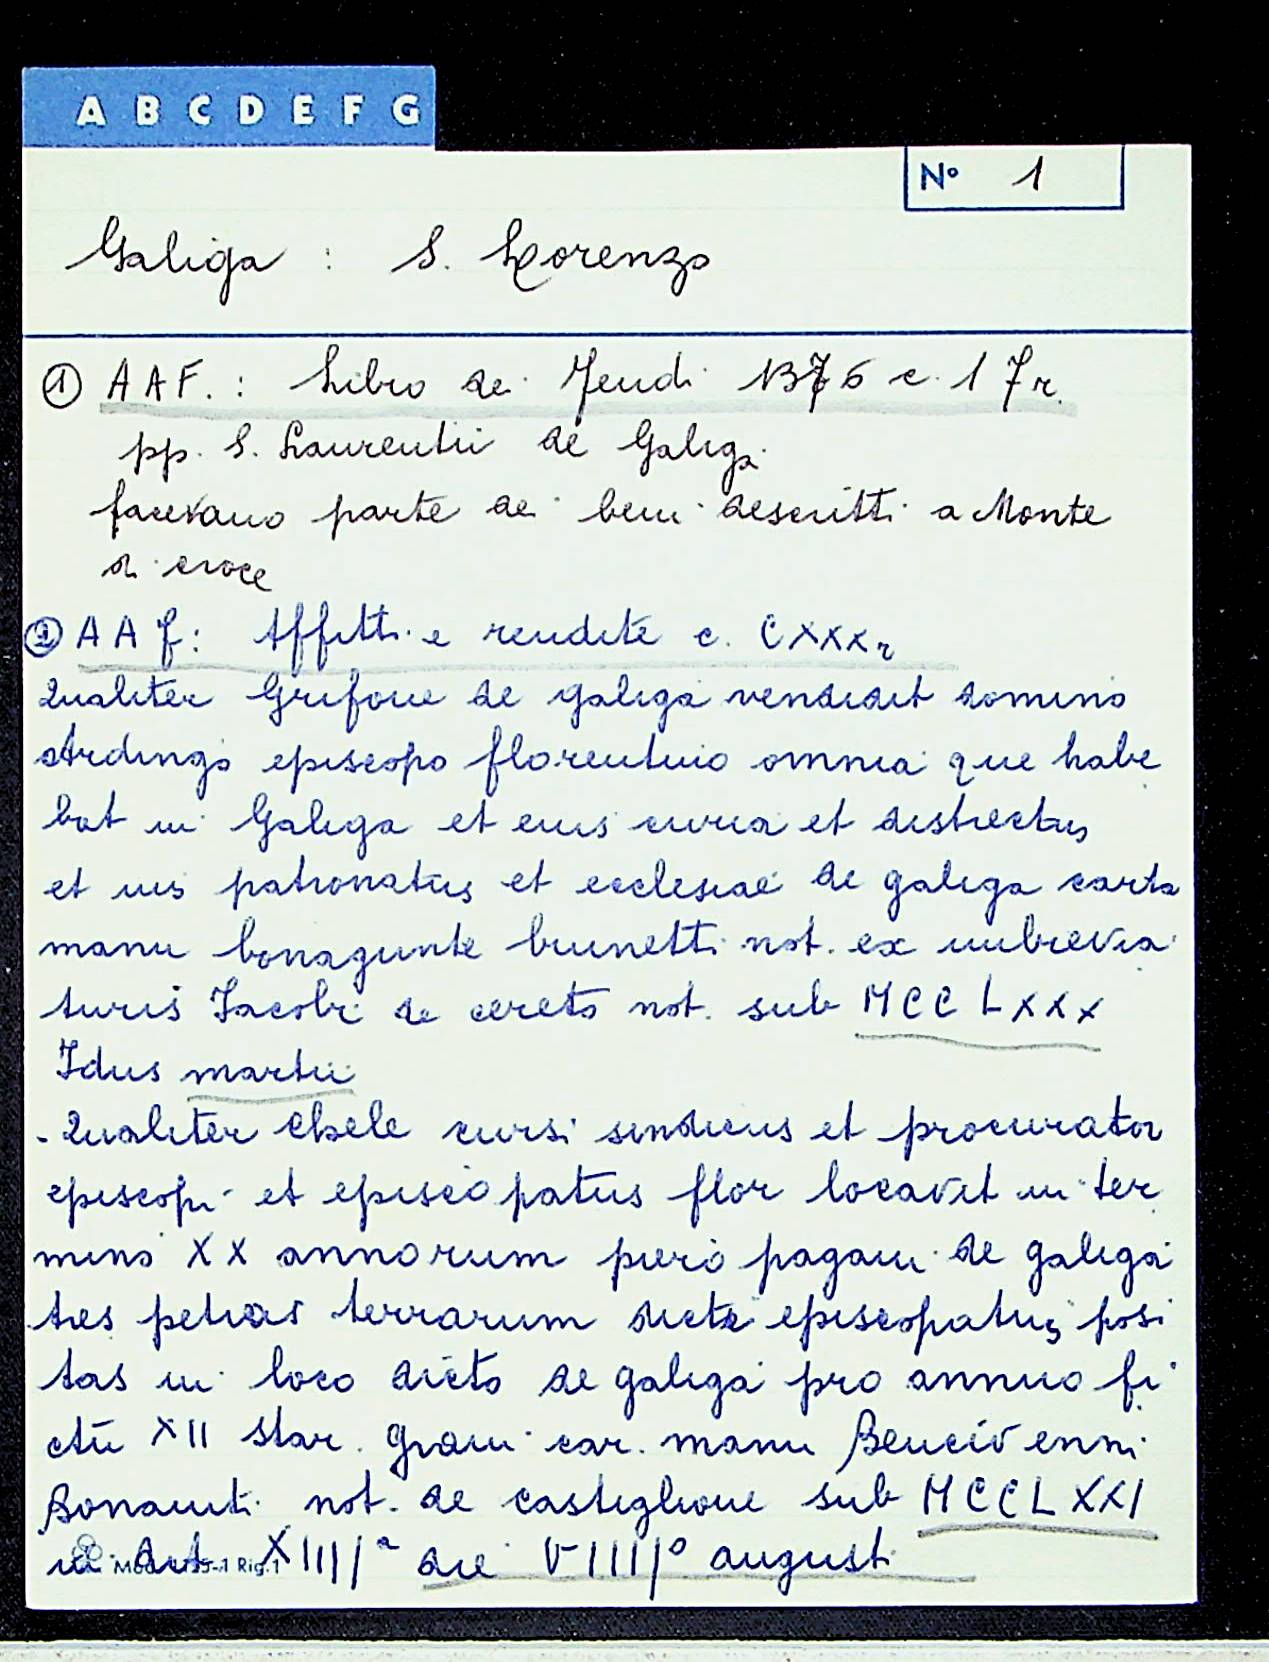 A B C D E F G
N° 1
Galiga : S. Lorenzo
① AAF. : Libro dei Feudi 1376 c. 17r.
pp. S. Laurentii de Galiga
facevano parte dei beni descritti a Monte
di croce
② AAf: Affitti e rendite c. CXXXr
Qualiter Grifone de galiga vendidit domino
Ardingo episcopo florentino omnia que habe
bat in Galiga et eius curia et districtus
et ius patronatus et ecclesiae de galiga carta
manu bonagunte brunetti not. ex imbrevia
turis Jacobi de cereto not. sub MCCLXXX
Idus martii
- Qualiter Chele cursi sindicus et procurator
episcopi et episcopatus flor locavit in ter
mino XX annorum piero pagani de galiga
tres petias terrarum dicti episcopatus posi
tas in loco dicto de galiga pro annuo fi
ctu XII star. grani car. manu Bencivenni
Bonaiuti not. de castiglione sub MCCLXXI
in dict. XIIIIa die VIIII° augusti